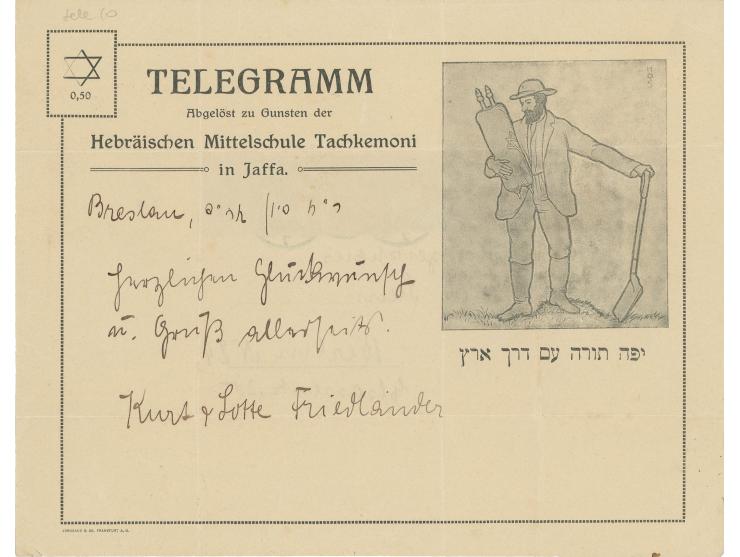 0,50
TELEGRAMM
Abgelöst zu Gunsten der
Hebräischen Mittelschule Tachkemoni
in Jaffa.
Breslau,
herzlichen Glückwunsch
u. Gruß allerseits.
Kurt & Lotte Friedländer
יפה תורה עם דרך ארץ